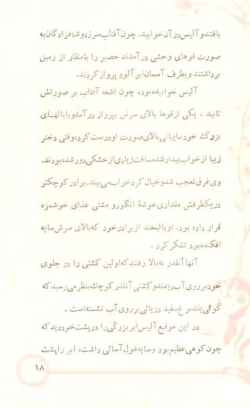 بافتند و آلیس در آن خوابید، چون آفتاب سر زد و شاهزادگان به
صورت قوهای وحشی در آمدند حصیر را بامنقار از زمین
برداشتند و بطرف آسمان ابر آلود پرواز کردند.
آلیس خوابیده بود، چون اشعه آفتاب بر صورتش
تابید، یکی از قوها بالای سرش بپرواز در آمد و با بالهای
بزرگ خود سایبانی بالای صورت او درست کرد، وقتی دختر
زیبا از خواب بیدار شد مسافت زیادی از خشکی دور شده بودند،
وی غرق تعجب شد و خیال کرد خواب می بیند. برادر کوچکتر
در یکطرفش مقداری خوشهٔ انگور و مشتی غذای خوشمزه
قرار داده بود. او با لبخند از برادر خود که بالای سرش سایه
افکنده بود تشکر کرد.
آنها آنقدر به بالا رفتند که اولین کشتی را در جلوی
خود بر روی آب دیدند و کشتی آنقدر کوچك بنظر می رسید که
گوئی یك مرغ سفید دریائی بر روی آب نشسته است.
در این موقع آلیس ابر بزرگی را در پشت خود دید که
چون کوهی عظیم بود و سایه غول آسائی داشت، ابر را پشت
۱۸